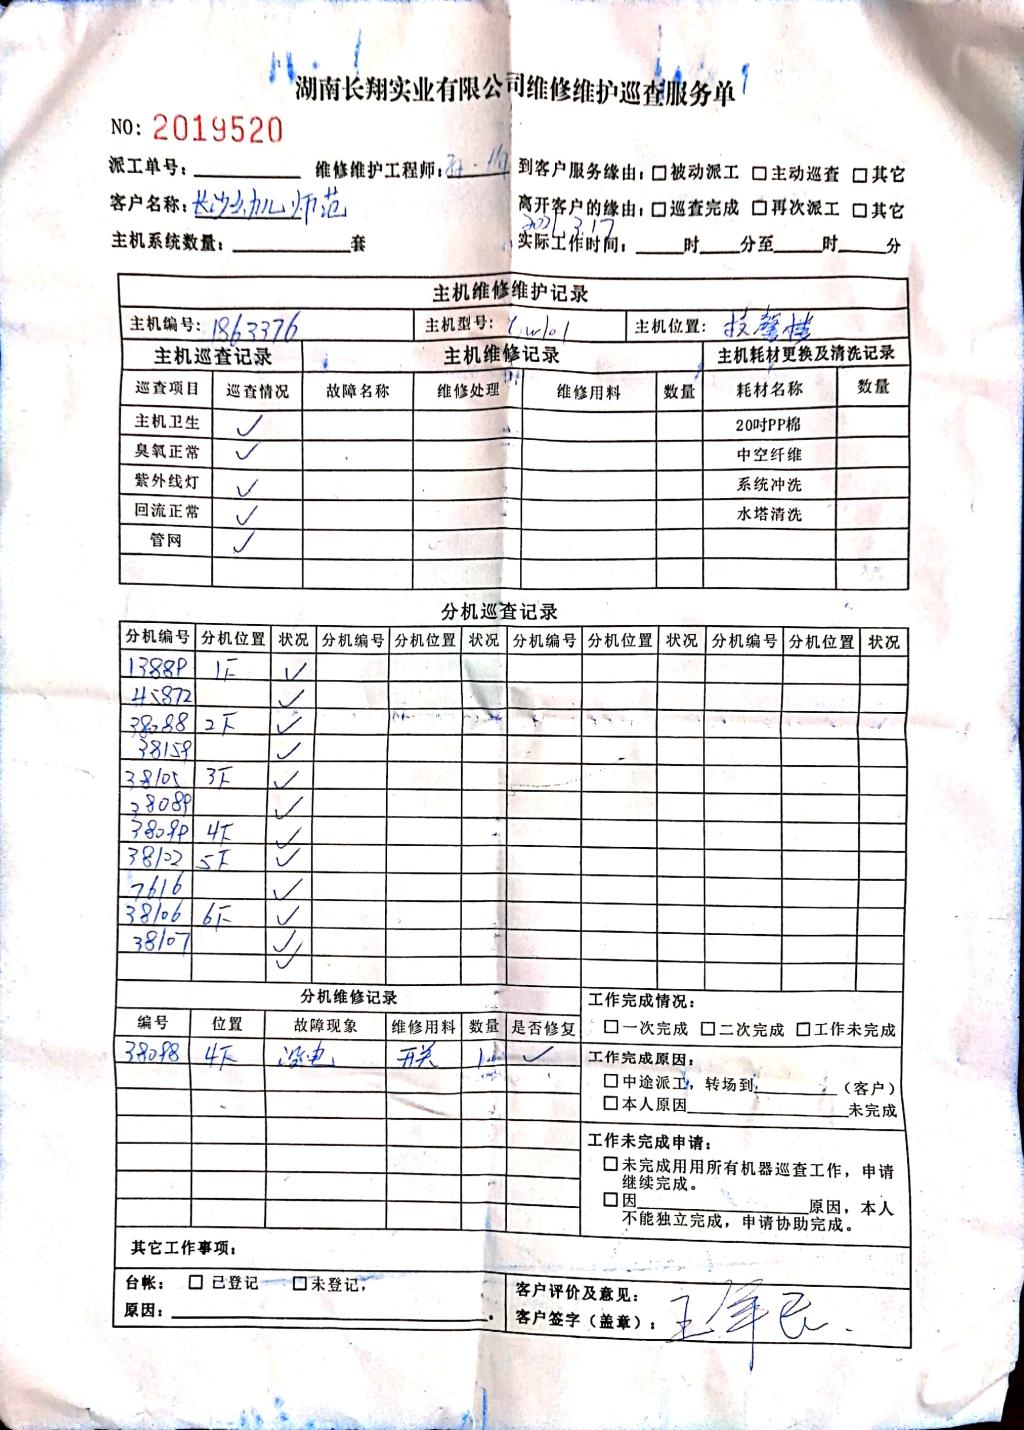 湖南长翔实业有限公司维修维护巡查服务单
NO: 2019520
派工单号: 维修维护工程师: 到客户服务缘由: □被动派工 □主动巡查 □其它
客户名称: 长沙幼儿师范 离开客户的缘由: □巡查完成 □再次派工 □其它
2021.3.17
主机系统数量: 套 实际工作时间: 时 分至 时 分
主机维修维护记录
主机编号: 1863376 主机型号: 主机位置:
主机巡查记录 主机维修记录 主机耗材更换及清洗记录
巡查项目 巡查情况 故障名称 维修处理 维修用料 数量 耗材名称 数量
主机卫生 ✓ 20吋PP棉
臭氧正常 ✓ 中空纤维
紫外线灯 ✓ 系统冲洗
回流正常 ✓ 水塔清洗
管网 ✓
分机巡查记录
分机编号 分机位置 状况 分机编号 分机位置 状况 分机编号 分机位置 状况 分机编号 分机位置 状况
13889 1F ✓
45872 ✓
38088 2F ✓
38159 ✓
38105 3F ✓
38089 ✓
38099 4F ✓
38102 5F ✓
7616 ✓
38106 6F ✓
38107 ✓
✓
分机维修记录 工作完成情况:
编号 位置 故障现象 维修用料 数量 是否修复 □一次完成 □二次完成 □工作未完成
38098 4F 没电 开关 1 ✓ 工作完成原因:
□中途派工, 转场到 (客户)
□本人原因 未完成
工作未完成申请:
□未完成用用所有机器巡查工作, 申请
继续完成。
□因 原因, 本人
不能独立完成, 申请协助完成。
其它工作事项:
台帐: □已登记 □未登记,
原因: .
客户评价及意见:
客户签字(盖章):